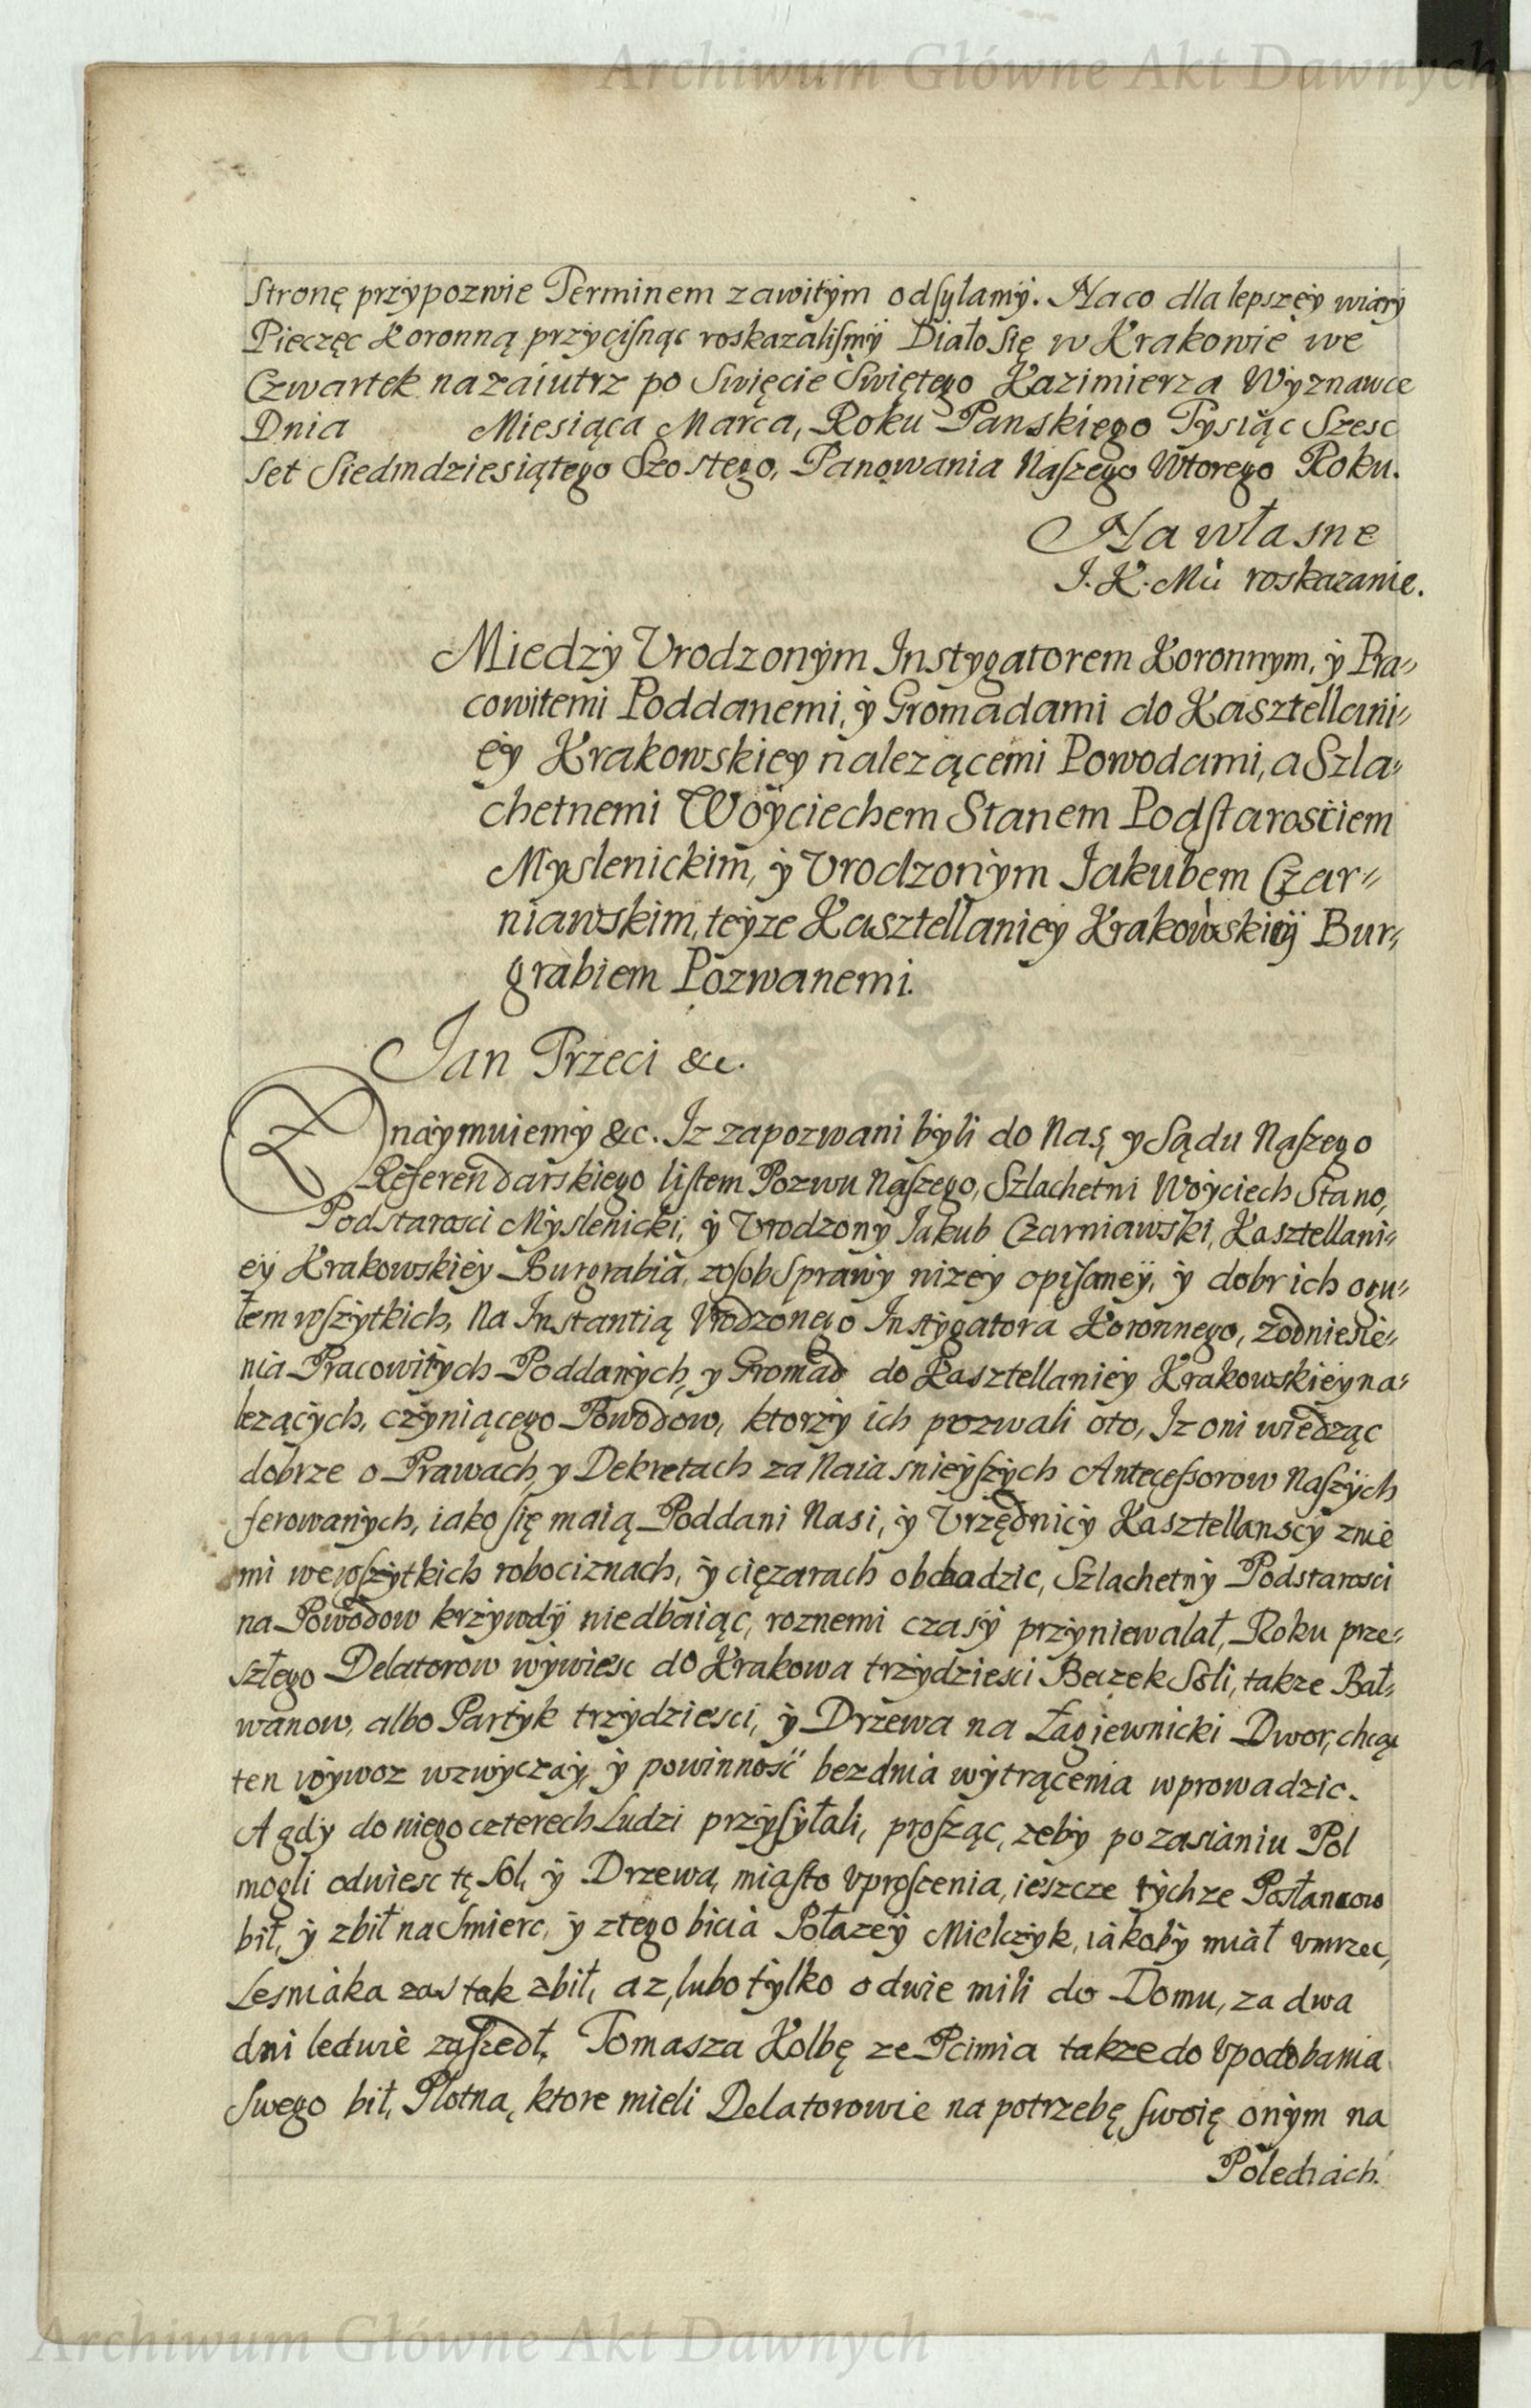 Archiwum Główne Akt Dawnych
Stronę przypozwie Terminem zawitym odsyłamy. Na co dla lepszey wiary
Pieczęc Koronną przycisnąc roskazalismy Działo się w Krakowie we
Czwartek nazaiutrz po Swięcie Swiętego Kazimierza Wyznawce
Dnia Miesiąca Marca, Roku Panskiego Tysiąc Szesc
set Siedmdziesiątego Szostego, Panowania Naszego Wtorego Roku.
Na własne
J. K. Mci roskazanie.
Miedzy Vrodzonym Instygatorem Koronnym, y Pra-
cowitemi Poddanemi, y Gromadami do Kasztellani-
ey Krakowskiey nalezącemi Powodami, a Szla-
chetnemi Woyciechem Stanem Podstarosciem
Myslenickim, y Vrodzonym Jakubem Czar-
niawskim, teyze Kasztellaniey Krakowskiey Bur-
grabiem Pozwanemi.
Jan Trzeci &c.
Znaymuiemy &c. Iz zapozwani byli do Nas, y Sądu Naszego
Referendarskiego listem Pozwu Naszego, Szlachetni Woyciech Stano,
Podstarosci Myslenicki, y Vrodzony Jakub Czarniawski, Kasztellani-
ey Krakowskiey Burgrabia, zosob Sprawy nizey opisaney, y dobr ich ogu-
łem wszytkich, Na Instantią Vrodzonego Instygatora Koronnego, zodniesie-
nia Pracowitych Poddanych, y Gromad do Kasztellaniey Krakowskiey na-
lezących, czyniącego Powodow, ktorzy ich pozwali oto, Iz oni wiedząc
dobrze o Prawach, y Dekretach za Naiasnieyszych Antecessorow Naszych
ferowanych, iako się maią Poddani Nasi, y Vrzędnicy Kasztellanscy znie
mi we wszytkich robociznach, y cięzarach obchadzic, Szlachetny Podstarosci
na Powodow krzywdy niedbaiąc, roznemi czasy przyniewalał, Roku prze-
szłego Delatorow wywiesc do Krakowa trzydziesci Beczek Soli, takze Bał-
wanow, albo Partyk trzydziesci, y Drzewa na Łagiewnicki Dwor, chcąc
ten wywoz wzwyczay, y powinność bez dnia wytrącenia wprowadzic.
A gdy do niego czterech Ludzi przysyłali, prosząc, zeby po zasianiu Pol
mogli odwiesc tę Sol, y Drzewa, miasto Vproscenia, ieszcze tychze Posłancow
bił, y zbił na Smierc, y ztego bicia Błazey Mielczyk, iakoby miał vmrzec,
Lesniaka zas tak zbił, az, lubo tylko o dwie mili do Domu, za dwa
dni ledwie zaszedł, Tomasza Kolbę ze Pcimia takze do Vpodobania
Swego bił, Płotna, ktore mieli Delatorowie na potrzebę swoię onym na
Polechach.
Archiwum Główne Akt Dawnych